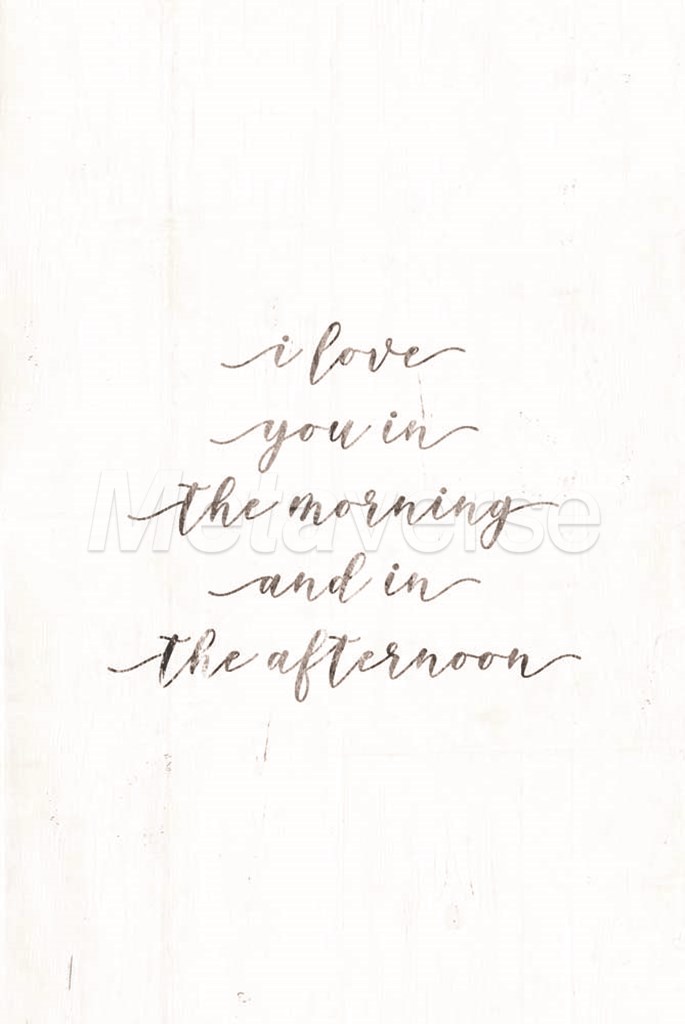 i love
you in
the morning
Metaverse
and in
the afternoon